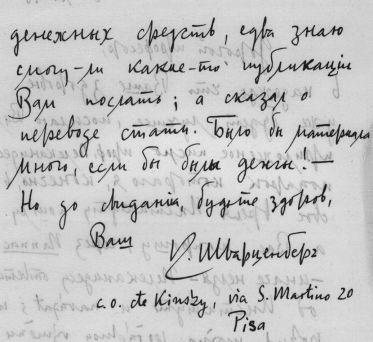 денежных средств, едва знаю
смогу-ли какие-то публикаціи
Вам послать; а сказал о
переводе стати. Было бы материала
много, если бы были деньги! —
Но до свиданія, будьте здоров,
Ваш
Шварценберг
c.o. de Kinsky, via S. Martino 20
Pisa